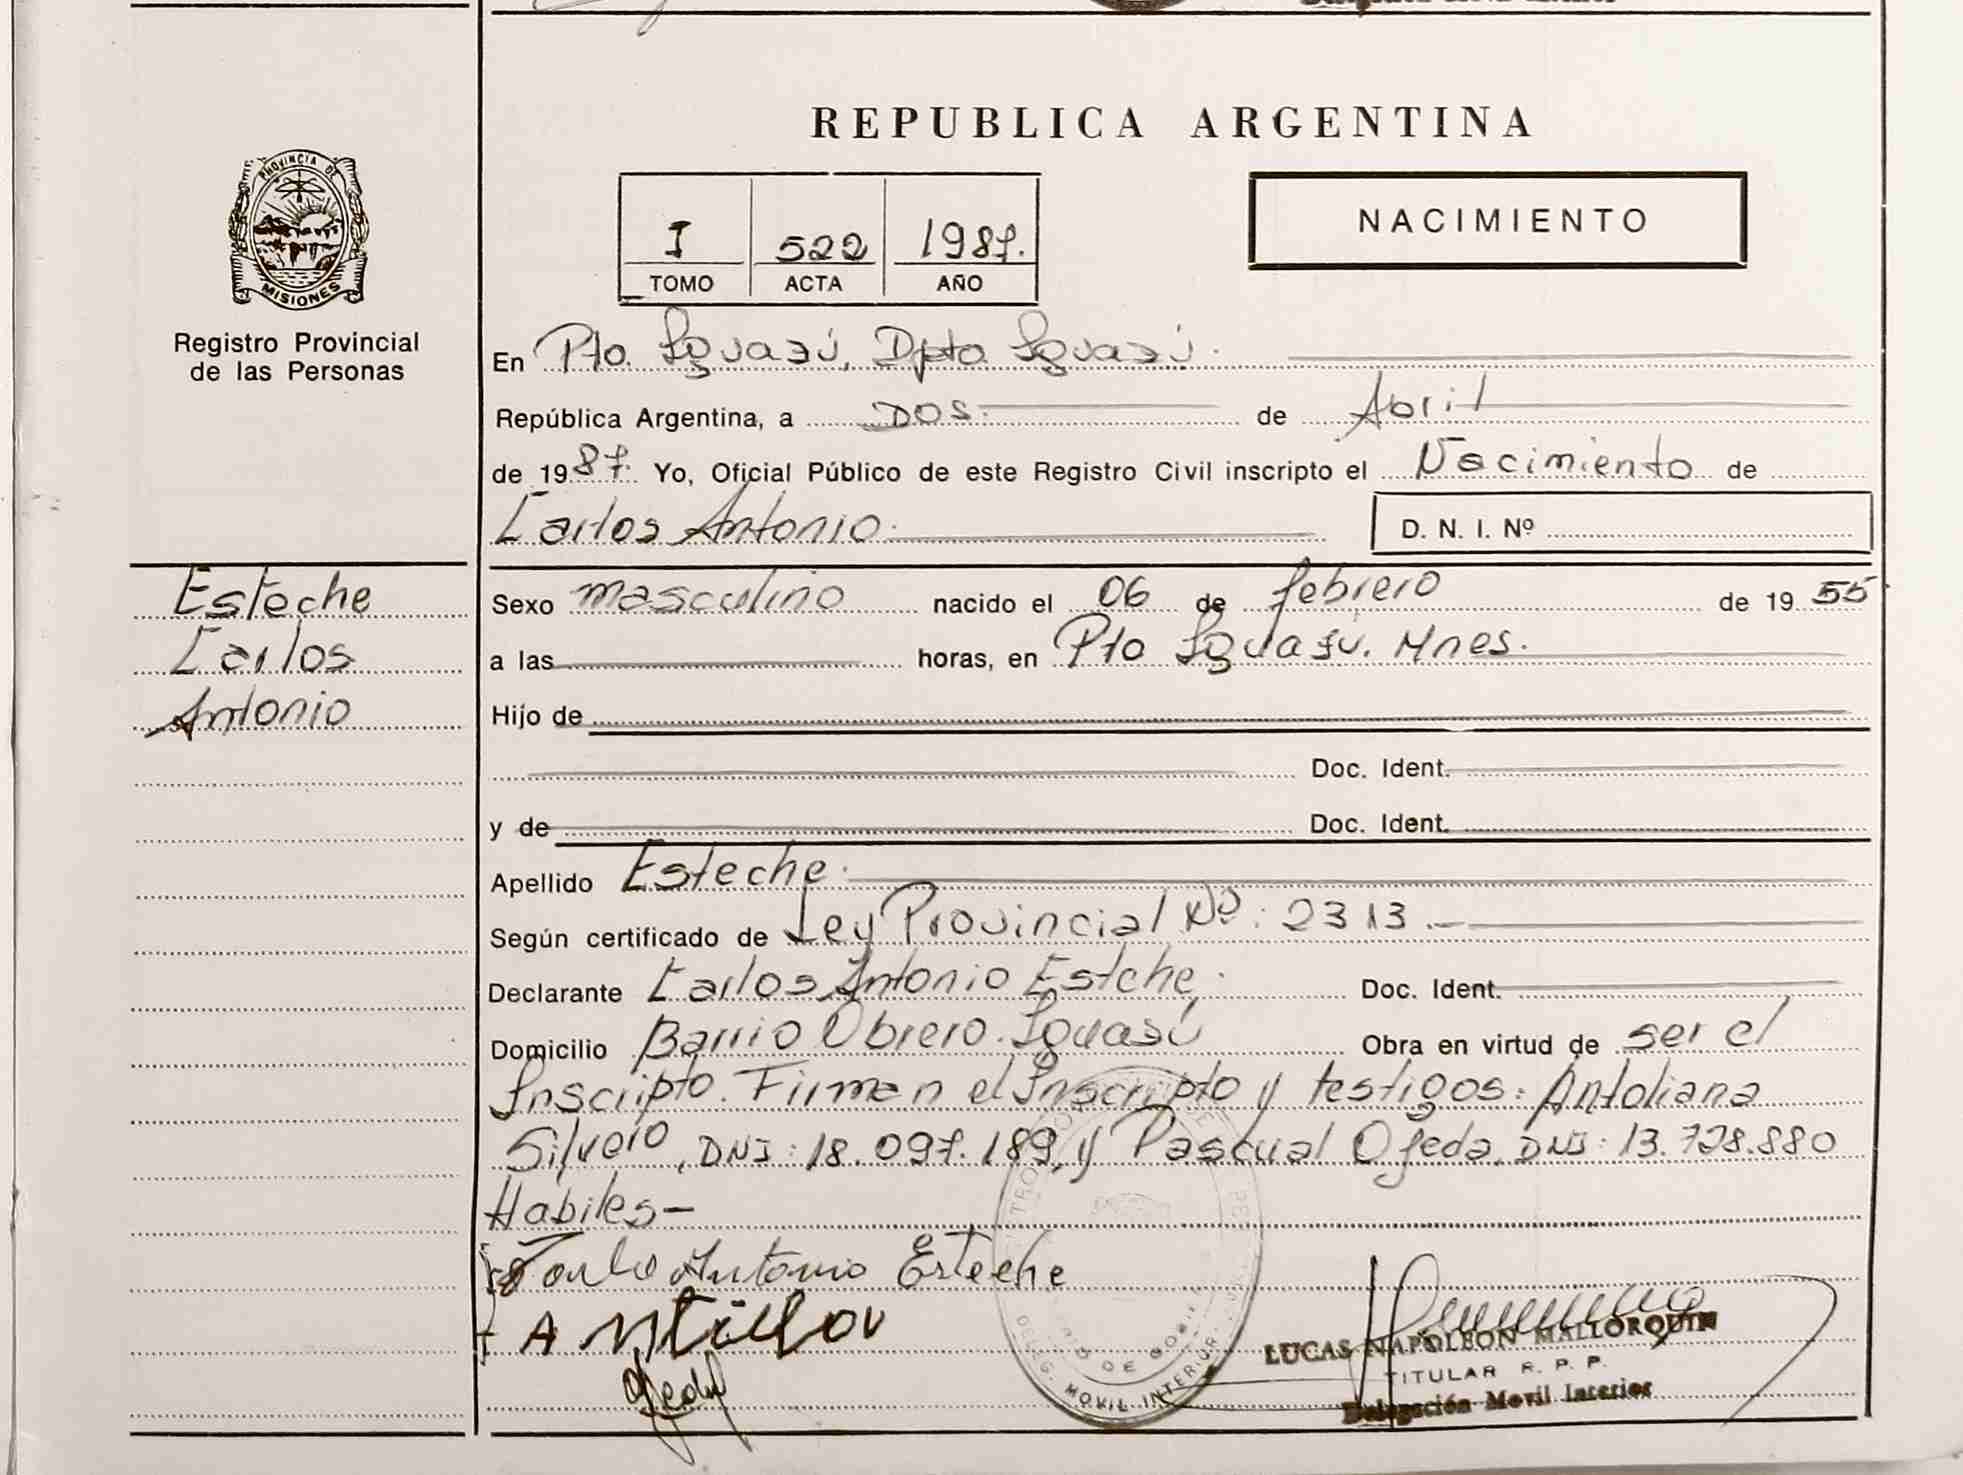 REPUBLICA ARGENTINA
PROVINCIA DE
MISIONES
Registro Provincial
de las Personas
I 522 1987.
TOMO ACTA AÑO
NACIMIENTO
En Pto. Iguazú, Dpto Iguazú.
República Argentina, a DOS. de Abril
de 1987. Yo, Oficial Público de este Registro Civil inscripto el Nacimiento de
Carlos Antonio.
D. N. I. Nº
Esteche
Carlos
Antonio
Sexo masculino nacido el 06 de febrero de 1955
a las horas, en Pto Iguazú. Mnes.
Hijo de
Doc. Ident.
y de Doc. Ident.
Apellido Esteche.
Según certificado de Ley Provincial Nº: 2313.-
Declarante Carlos Antonio Estche. Doc. Ident.
Domicilio Barrio Obrero. Iguasú Obra en virtud de ser el
Inscripto. Firman el Inscripto y testigos: Antoliana
Silvero, DNI: 18.097.189, y Pascual Ojeda, DNI: 13.728.880
Habiles-
Antonio Esteche
Ojeda
DELEG. MOVIL INTERIOR
LUCAS NAPOLEON MALLORQUIN
TITULAR R. P. P.
Delegación Movil Interior